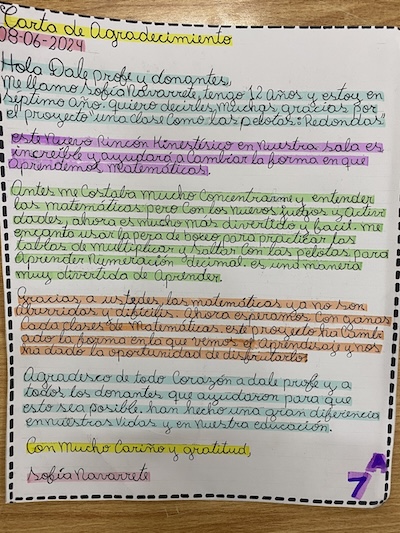 Carta de Agradecimiento
08-06-2024
Hola Dale profe y donantes,
Me llamo Sofía Navarrete, tengo 12 años y estoy en
Séptimo año. Quiero decirles muchas gracias por
el proyecto "una clase como las pelotas: Redondas"
este nuevo Rincón Kinestésico en nuestra sala es
increíble y ayudará a cambiar la forma en que
aprendemos matemáticas.
Antes me costaba mucho concentrarme y entender
las matemáticas pero con los nuevos juegos y activi
dades, ahora es mucho más divertido y facil. me
encanta usar la pera de boxeo para practicar las
tablas de multiplicar y saltar con las pelotas para
aprender numeración decimal. es una manera
muy divertida de aprender.
Gracias a ustedes las matemáticas ya no son
aburridas ni difíciles. Ahora esperamos con ganas
cada clases de matemáticas. este proyecto ha cambi
ado la forma en la que vemos el aprendizaje y nos
ha dado la oportunidad de disfrutarlos.
Agradesco de todo corazón a dale profe y a
todos los donantes que ayudaron para que
esto sea posible. han hecho una gran diferencia
en nuestras vidas y en nuestra educación.
Con mucho cariño y gratitud,
Sofía Navarrete
7A